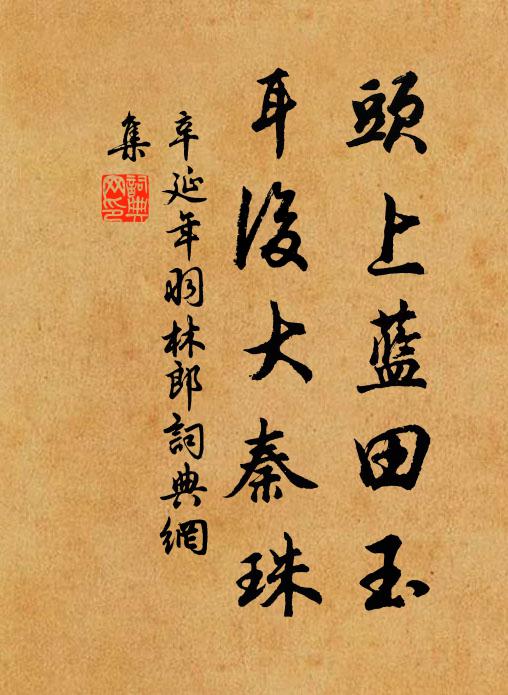 頭上藍田玉
耳後大秦珠
辛延年羽林郎詞典網
集
詞典
网印